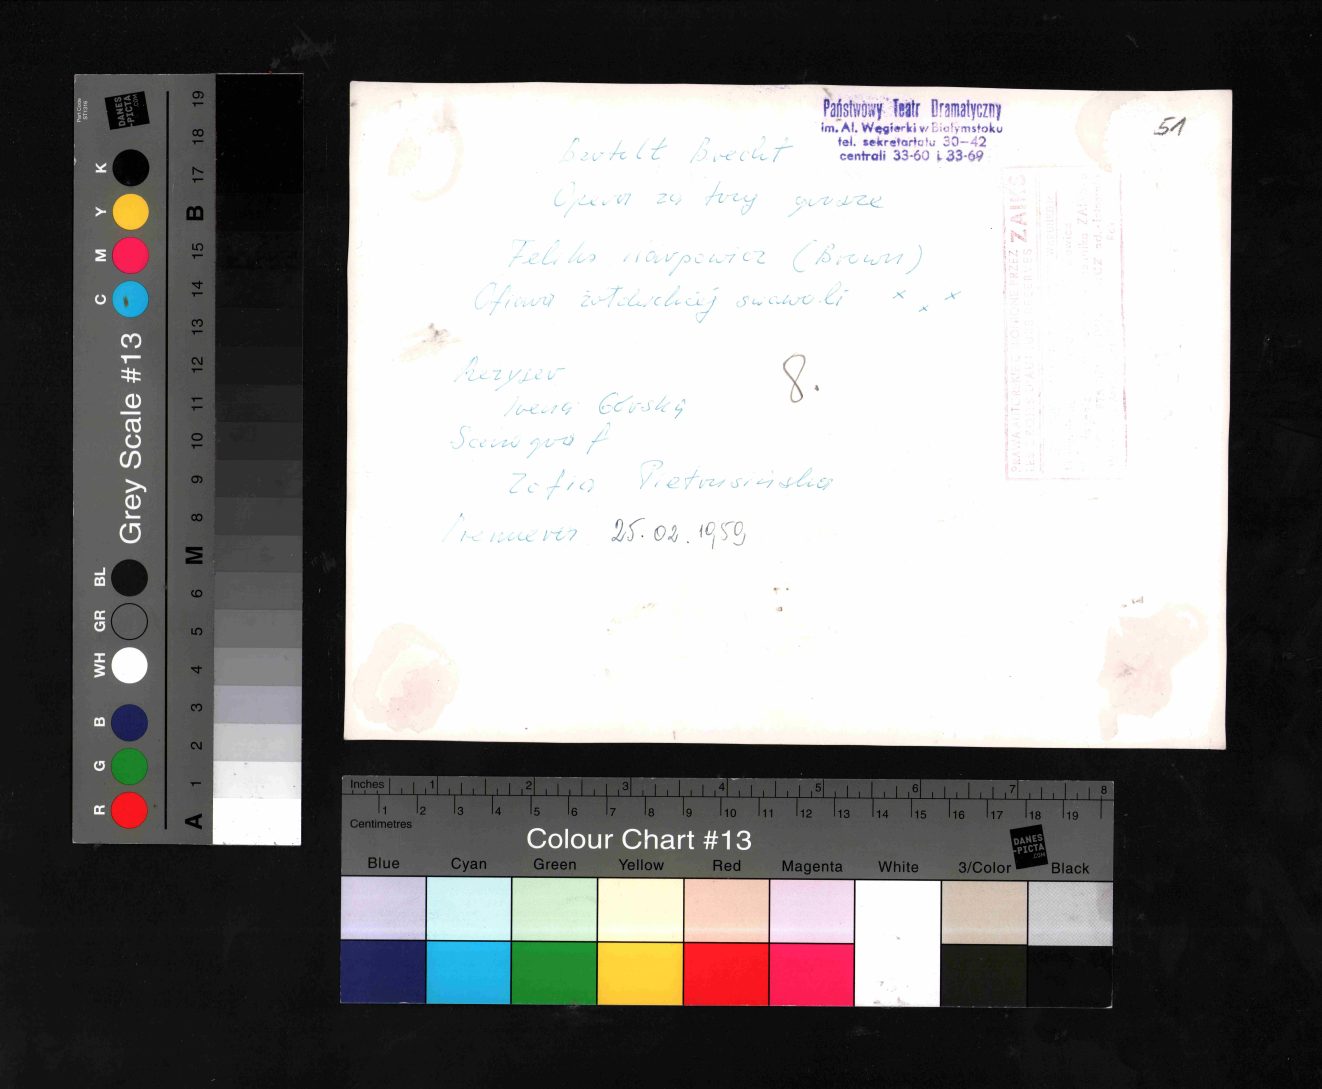 Państwowy Teatr Dramatyczny
im. Al. Węgierki w Białymstoku
tel. sekretariatu 30-42
centrali 33-60 i 33-69
51
Bertolt Brecht
Opera za trzy grosze
Feliks Karpowicz (Brown)
Ofiara żołdackiej swawoli x x x
Reżyser
Irena Górska
8.
Scenograf
Zofia Pietrusińska
Premiera 25.02.1959
PRZEZ ZAIKS
Part Code
ST1316
DANES
-PICTA
.COM
Grey Scale #13
R G B WH GR BL C M Y K
A 1 2 3 4 5 6 M 8 9 10 11 12 13 14 15 B 17 18 19
Inches 1 2 3 4 5 6 7 8
1 2 3 4 5 6 7 8 9 10 11 12 13 14 15 16 17 18 19
Centimetres
Colour Chart #13
DANES
-PICTA
.COM
Blue Cyan Green Yellow Red Magenta White 3/Color Black